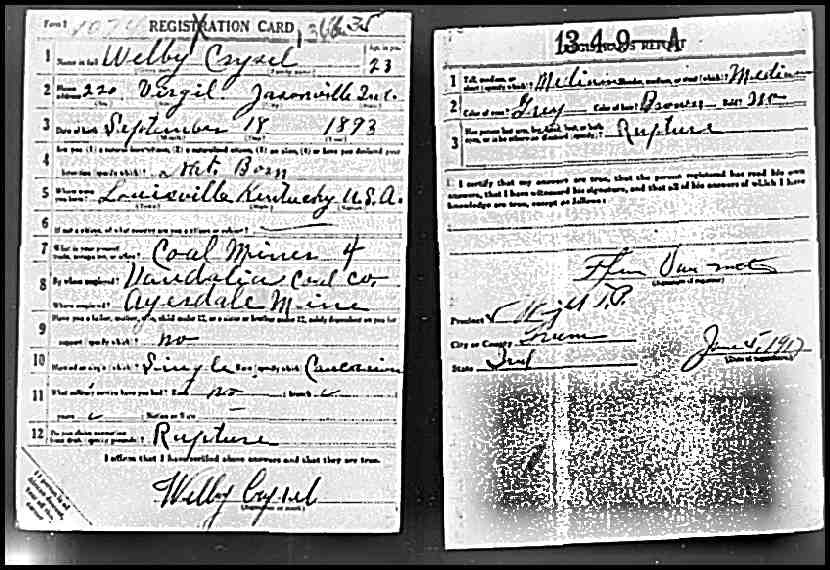 Form 1 REGISTRATION CARD
1 Name in full Welby Crysel Age, in yrs. 23
(Given name) (Family name)
2 Home address 220 Virgil Jasonville Ind.
3 Date of birth September 18 1893
(Month) (Day) (Year)
Are you (1) a natural-born citizen, (2) a naturalized citizen, (3) an alien, (4) or have you declared your
4 intention (specify which)? Nat. Born
5 Where were you born? Louisville Kentucky U.S.A.
6 If not a citizen, of what country are you a citizen or subject?
7 What is your present trade, occupation, or office? Coal Miner 4
8 By whom employed? Vandalia Coal Co.
Where employed? Ayersdale Mine
9 Have you a father, mother, wife, child under 12, or a sister or brother under 12, solely dependent on you for
support (specify which)? no
10 Married or single (which)? Single Race (specify which)? Caucasian
11 What military service have you had? Rank no branch
years Nation or State
12 Do you claim exemption from draft (specify grounds)? Rupture
I affirm that I have verified above answers and that they are true.
Welby Crysel
(Signature or mark)
1349-A
REGISTRAR'S REPORT
1 Tall, medium, or short (specify which)? Medium Slender, medium, or stout (which)? Medium
2 Color of eyes? Grey Color of hair? Brown Bald? no
3 Has person lost arm, leg, hand, foot, or both eyes, or is he otherwise disabled (specify)? Rupture
I certify that my answers are true, that the person registered has read his own
answers, that I have witnessed his signature, and that all of his answers of which I have
knowledge are true, except as follows:
(Signature of registrar)
Precinct Wright T.P.
City or County Greene
State Ind June 5, 1917
(Date of registration)